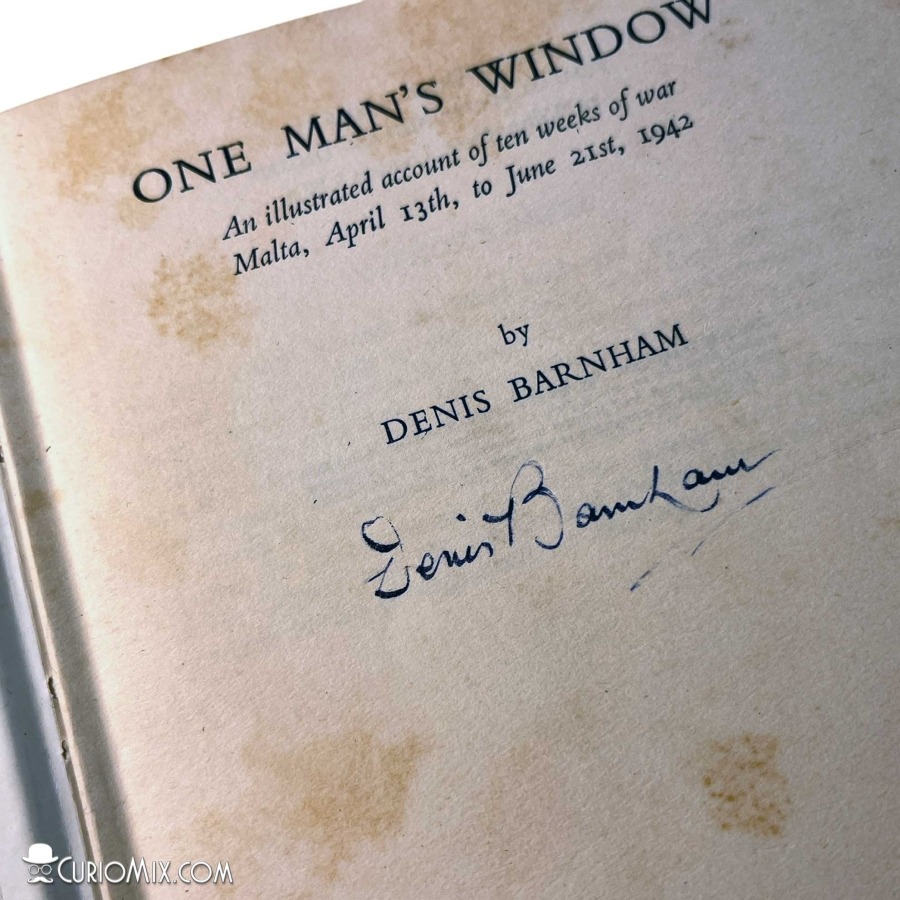 ONE MAN'S WINDOW
An illustrated account of ten weeks of war
Malta, April 13th, to June 21st, 1942
by
DENIS BARNHAM
Denis Barnham
CURIOMIX.COM